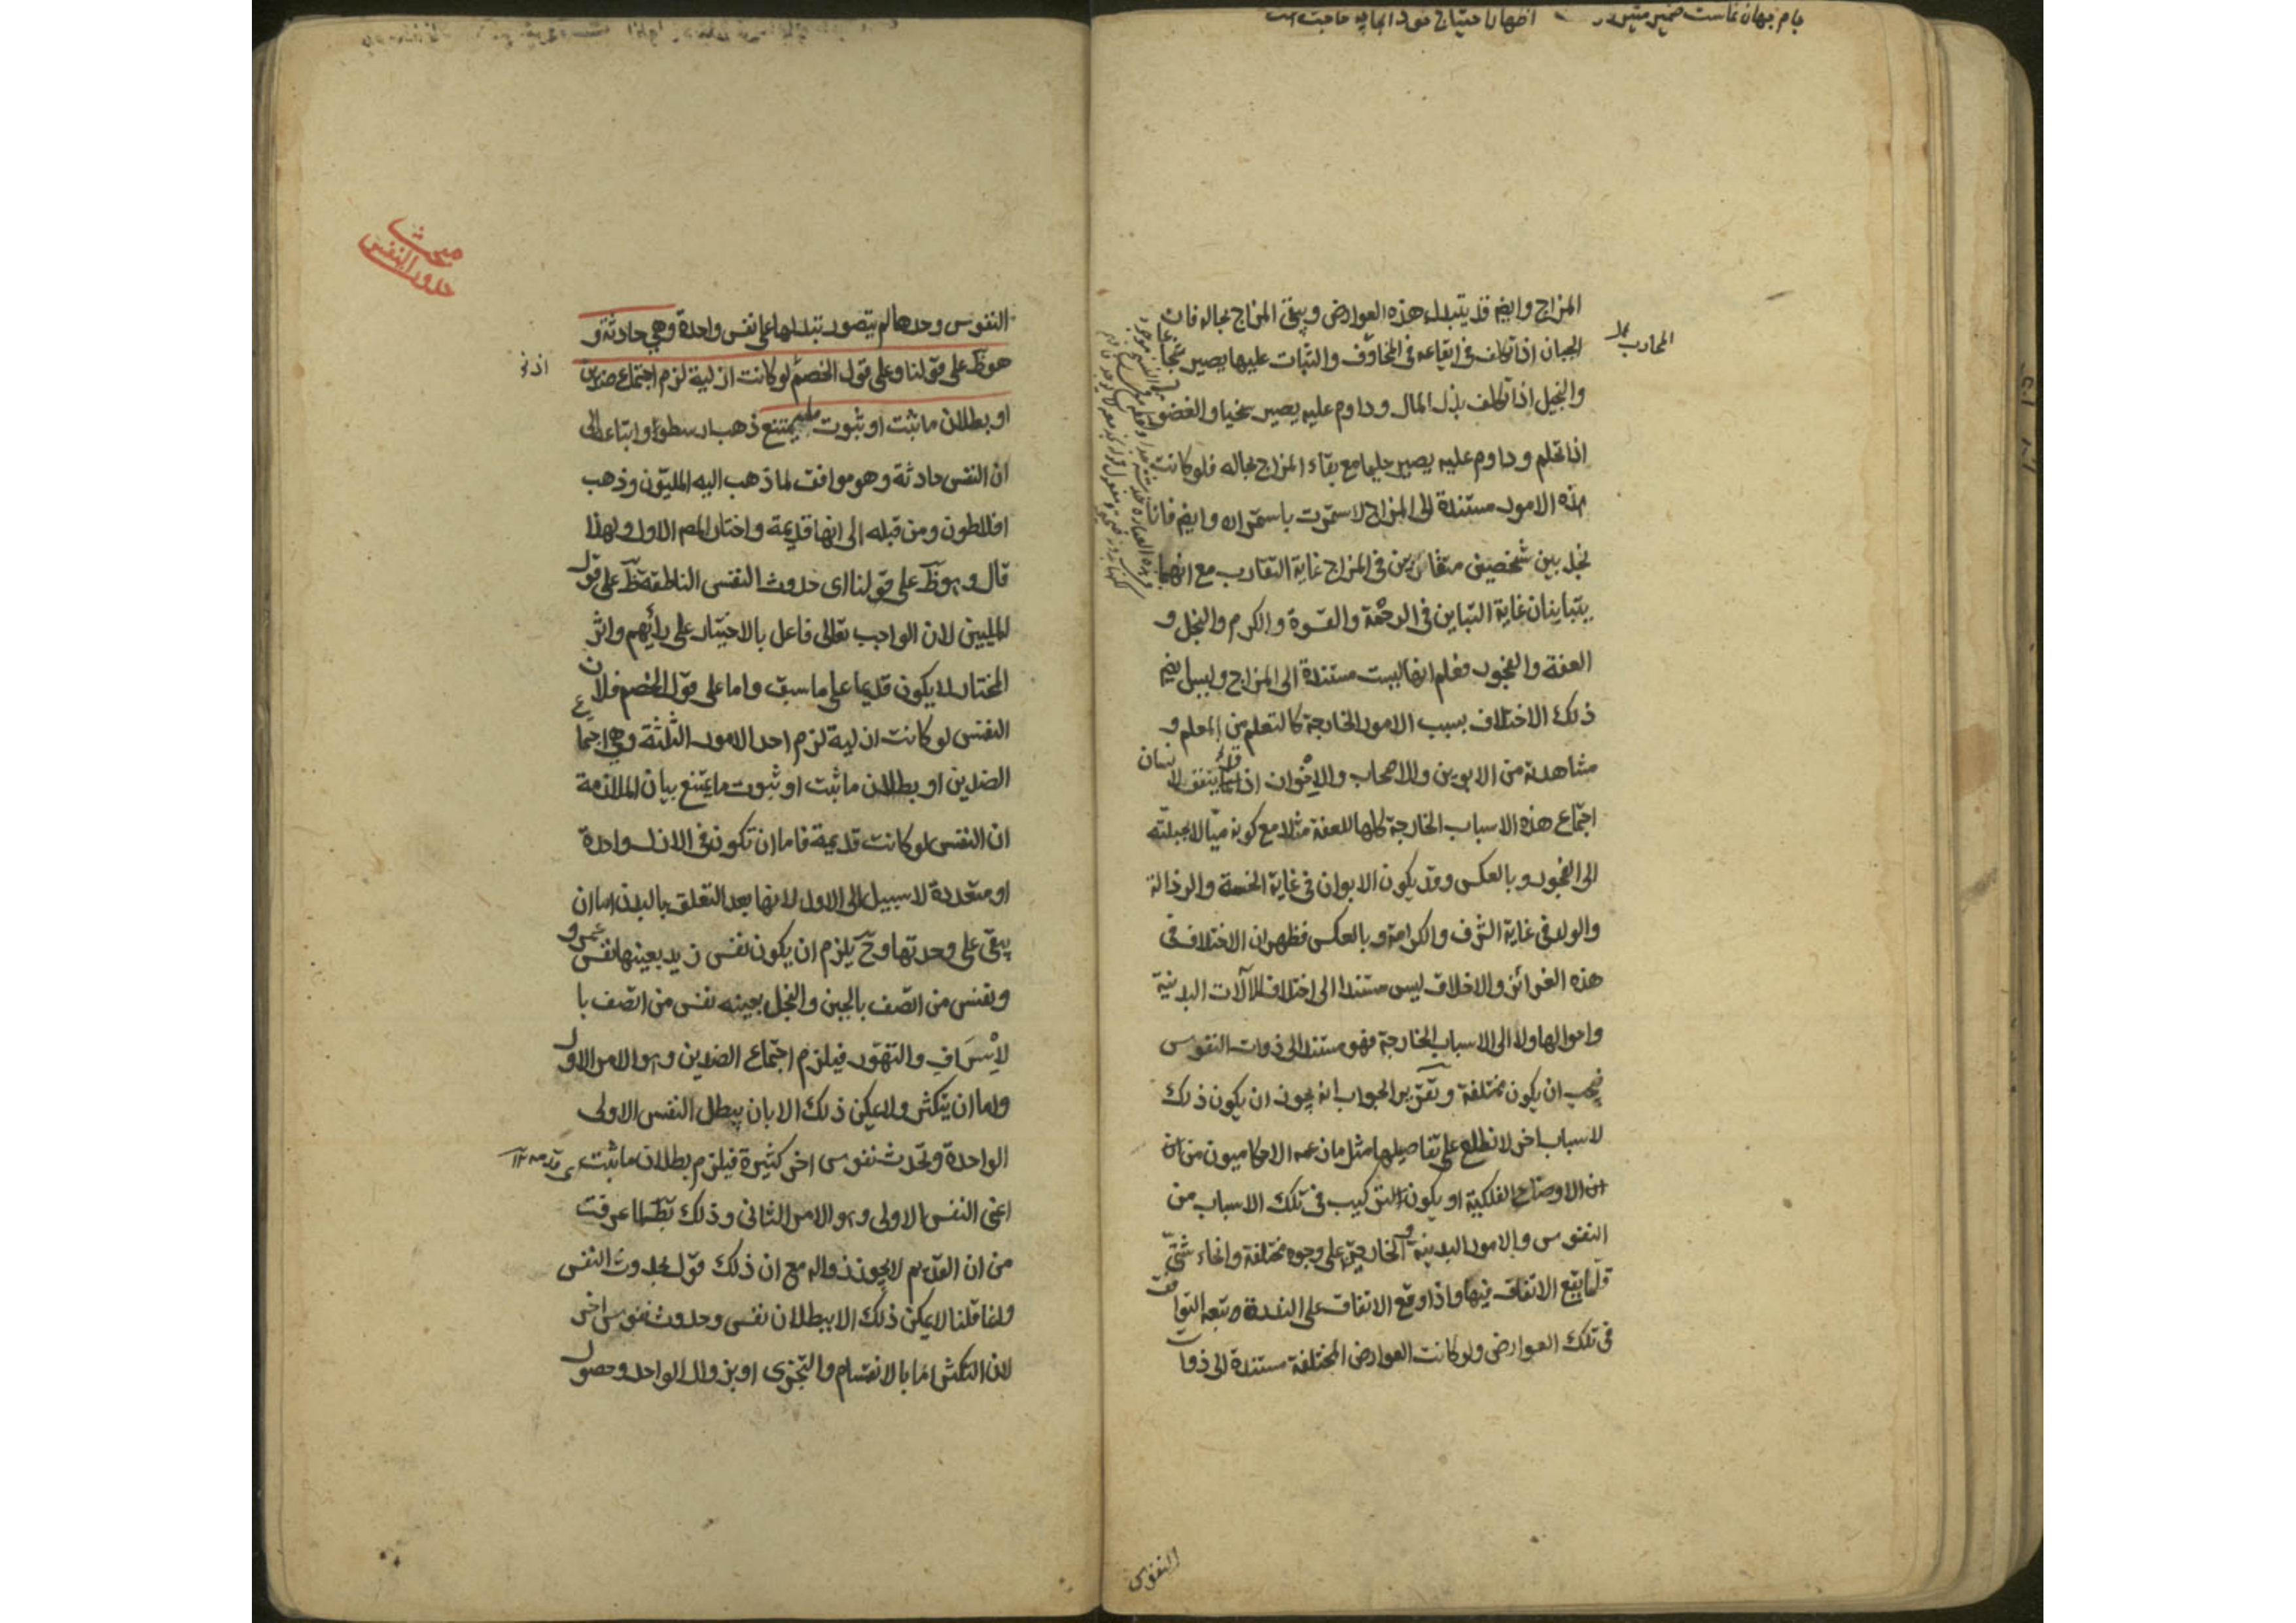 جام جهان نماست ضمیر منیر دوست اظهار احتیاج خود آنجا چه حاجت است
المزاج وايضم قد يتبدل هذه العوارض ويبقى المزاج بحاله فان
المحارب نجد
الجبان اذا تكلف في ايقاعه في المخاوف والثبات عليها يصير شجاعا
والبخيل اذا تكلف بذل المال وداوم عليه يصير سخيا والغضوب
اذا تحلم وداوم عليه يصير حليما مع بقاء المزاج بحاله فلو كانت
هذه الامور مستندة الى المزاج لاستمرت باستمراره وايضم فانا
نجد بين شخصين متقاربين في المزاج غاية التقارب مع انهما
يتباينان غاية التباين في الرحمة والقسوة والكرم والبخل و
العفة والفجور فعلم انها ليست مستندة الى المزاج وليس ايضم
ذلك الاختلاف بسبب الامور الخارجة كالتعلم من المعلم و
مشاهدته من الابوين والاصحاب والاخوان اذ قد يتفق لانسان
اجتماع هذه الاسباب الخارجة كلها للعفة مثلا مع كونه ميالا بجبلته
الى الفجور وبالعكس وقد يكون الابوان في غاية الخسة والرذالة
والولد في غاية الشرف والكرامة وبالعكس فظهر ان الاختلاف في
هذه الغرائز والاخلاق ليس مستندا الى اختلاف الآلات البدنية
واحوالها ولا الى الاسباب الخارجة فهو مستند الى ذوات النفوس
فيجب ان يكون مختلفة وتقرير الجواب انه يجوز ان يكون ذلك
لاسباب اخر لا نطلع على تفاصيلها مثل ما زعمه الاحكاميون من ان
ان الاوضاع الفلكية او يكون التركيب في تلك الاسباب من
النفوس والامور البدنية والخارجة على وجوه مختلفة وانحاء شتى
قلما يقع الاتفاق فيها واذا وقع الاتفاق على الندرة وتبعه التوافق
في تلك العوارض ولو كانت العوارض المختلفة مستندة الى ذوات
النفوس
مبحث
حدوث النفس
النفوس وحدها لم يتصور تبدلها على نفس واحدة وهي حادثة و
هو ظ على قولنا وعلى قول الخصم لو كانت ازلية لزم اجتماع ضدين
او بطلان ما ثبت او ثبوت ما يمتنع ذهب ارسطو واتباعه الى
ان النفس حادثة وهو موافق لما ذهب اليه المليون وذهب
افلاطون ومن قبله الى انها قديمة واختار المص الاول ولهذا
قال وهو ظ على قولنا اى حدوث النفس الناطقة ظ على قول
المليين لان الواجب تعالى فاعل بالاختيار على رأيهم واثر
المختار لا يكون قديما على ما سبق واما على قول الخصم فلان
النفس لو كانت ازلية لزم احد الامور الثلثة وهي اجتماع
الضدين او بطلان ما ثبت او ثبوت ما يمتنع بيان الملازمة
ان النفس لو كانت قديمة فاما ان تكون في الازل واحدة
او متعددة لا سبيل الى الاول لانها بعد التعلق بالبدن اما ان
يبقى على وحدتها وح يلزم ان يكون نفس زيد بعينها نفس عمرو
ونفس من اتصف بالجبن والبخل بعينه نفس من اتصف با
لاسراف والتهور فيلزم اجتماع الضدين وهو الامر الاول
واما ان يتكثر ولا يمكن ذلك الا بان يبطل النفس الاولى
الواحدة وتحدث نفوس اخر كثيرة فيلزم بطلان ما ثبت قدمه
اعنى النفس الاولى وهو الامر الثانى وذلك بط لما عرفت
من ان القديم لا يجوز زواله مع ان ذلك قول بحدوث النفس
وانما قلنا لا يمكن ذلك الا ببطلان نفس وحدوث نفوس اخر
لان التكثر اما بالانقسام والتجزى او بزوال الواحد وحصول